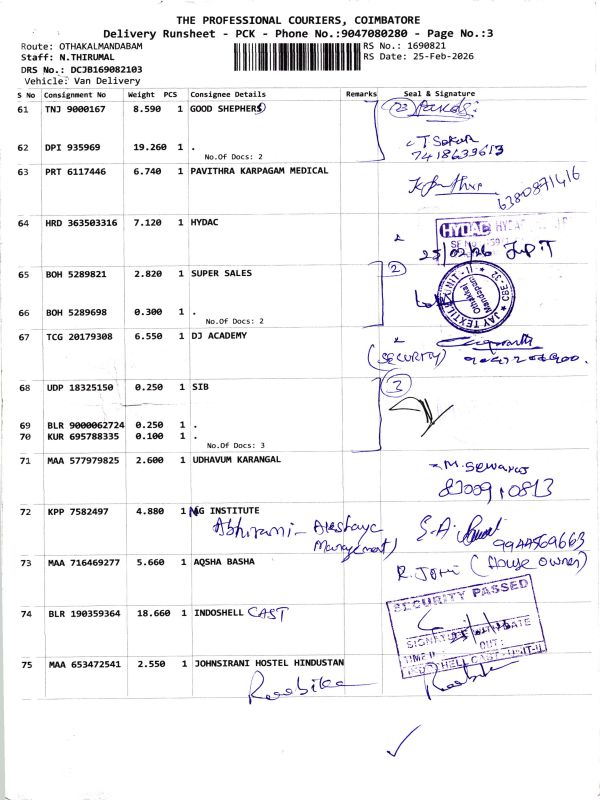 THE PROFESSIONAL COURIERS, COIMBATORE
Delivery Runsheet - PCK - Phone No.:9047080280 - Page No.:3
Route: OTHAKALMANDABAM
RS No.: 1690821
Staff: N.THIRUMAL
RS Date: 25-Feb-2026
DRS No.: DCJB169082103
Vehicle: Van Delivery
S No Consignment No Weight PCS Consignee Details Remarks Seal & Signature
61 TNJ 9000167 8.590 1 GOOD SHEPHERS
62 DPI 935969 19.260 1 .
No.Of Docs: 2
T Sekar
7418633613
63 PRT 6117446 6.740 1 PAVITHRA KARPAGAM MEDICAL
6380871416
64 HRD 363503316 7.120 1 HYDAC
HYDAC
25/02/26
65 BOH 5289821 2.820 1 SUPER SALES
2
66 BOH 5289698 0.300 1 .
No.Of Docs: 2
JAY TEXTILE UNIT-II CBE-32
Othakkal Mandapam
67 TCG 20179308 6.550 1 DJ ACADEMY
(SECURITY)
68 UDP 18325150 0.250 1 SIB
3
69 BLR 9000062724 0.250 1 .
70 KUR 695788335 0.100 1 .
No.Of Docs: 3
71 MAA 577979825 2.600 1 UDHAVUM KARANGAL
72 KPP 7582497 4.880 1 NG INSTITUTE
Abhirami - Akshaya
Management)
9944569663
73 MAA 716469277 5.660 1 AQSHA BASHA
R. JOTHI (House owner)
74 BLR 190359364 18.660 1 INDOSHELL CAST
SECURITY PASSED
75 MAA 653472541 2.550 1 JOHNSIRANI HOSTEL HINDUSTAN